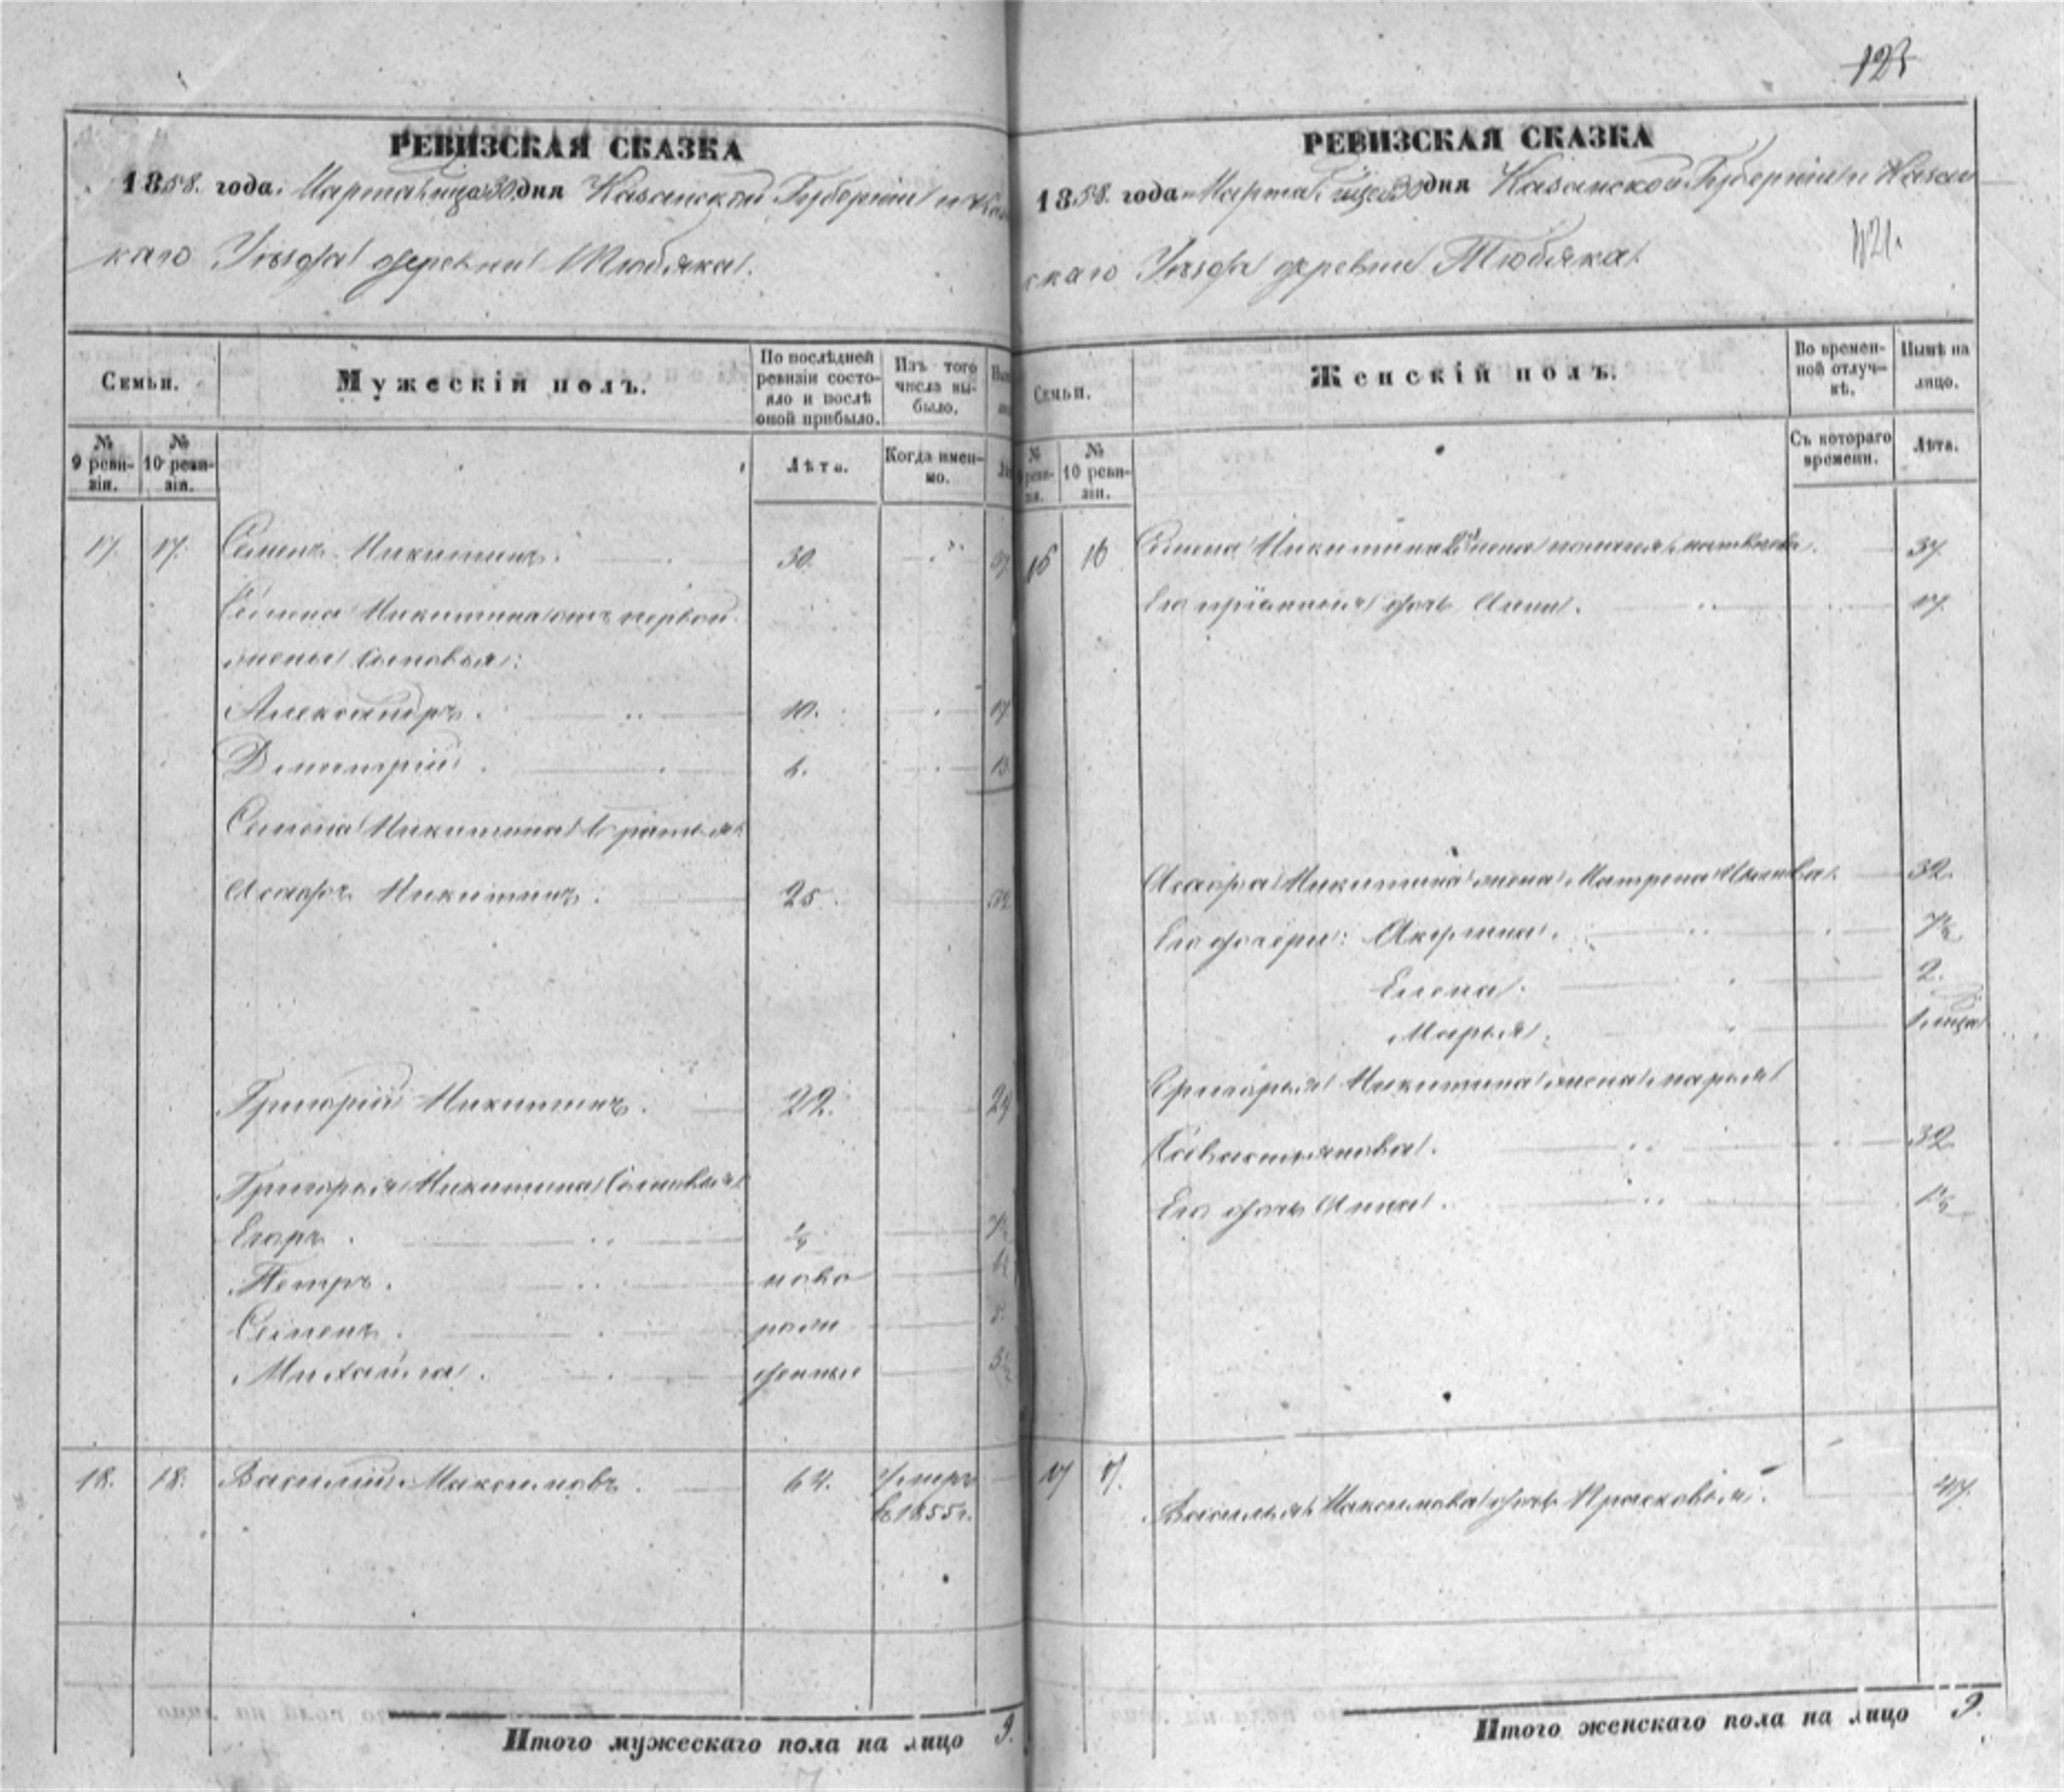 123
РЕВИЗСКАЯ СКАЗКА
1858. года. Марта м-ца 30 дня Казанской Губернiи и Каз
каго Уѣзда деревни Тюбяка.
Семьи.
Мужескiй полъ.
По послѣдней ревизiи состояло и послѣ оной прибыло.
Изъ того числа выбыло.
№ 9 ревизiи.
№ 10 ревизiи.
Лѣта.
Когда именно.
17. 17. Семенъ Никитинъ. 30. 37
Семена Никитина отъ первой
жены сыновья:
Александръ. 10. 17
Дмитрiй. 6. 13
Семена Никитина братья:
Асафъ Никитинъ. 25. 32
Григорiй Никитинъ. 22. 29
Григорья Никитина сыновья
Егоръ.
Петръ. ново
Семенъ. рож 5
Михайла. денные 3½
18. 18. Василiй Максимовъ. 64. Умеръ
въ 1855 г.
Итого мужескаго пола на лицо 9.
РЕВИЗСКАЯ СКАЗКА
1858. года Марта м-ца 30 дня Казанской Губернiи и Казан
скаго Уѣзда деревни Тюбяка.
121.
Семьи.
Женскiй полъ.
Во временной отлучкѣ.
Нынѣ на лицо.
№ ревизiи.
№ 10 ревизiи.
Съ котораго времени.
Лѣта.
16 16 Семена Никитина 2я жена 37
Его дочь Анна. 17.
Асафа Никитина жена Матрена 32.
Его дочери: Акулина. 7½
Елена. 2.
Марья. 1 м-ца
Григорья Никитина жена Марья
Севастьянова. 32
Его дочь Анна. 1½
17 17. Василья Максимова дочь Прасковья. 47.
Итого женскаго пола на лицо 9.